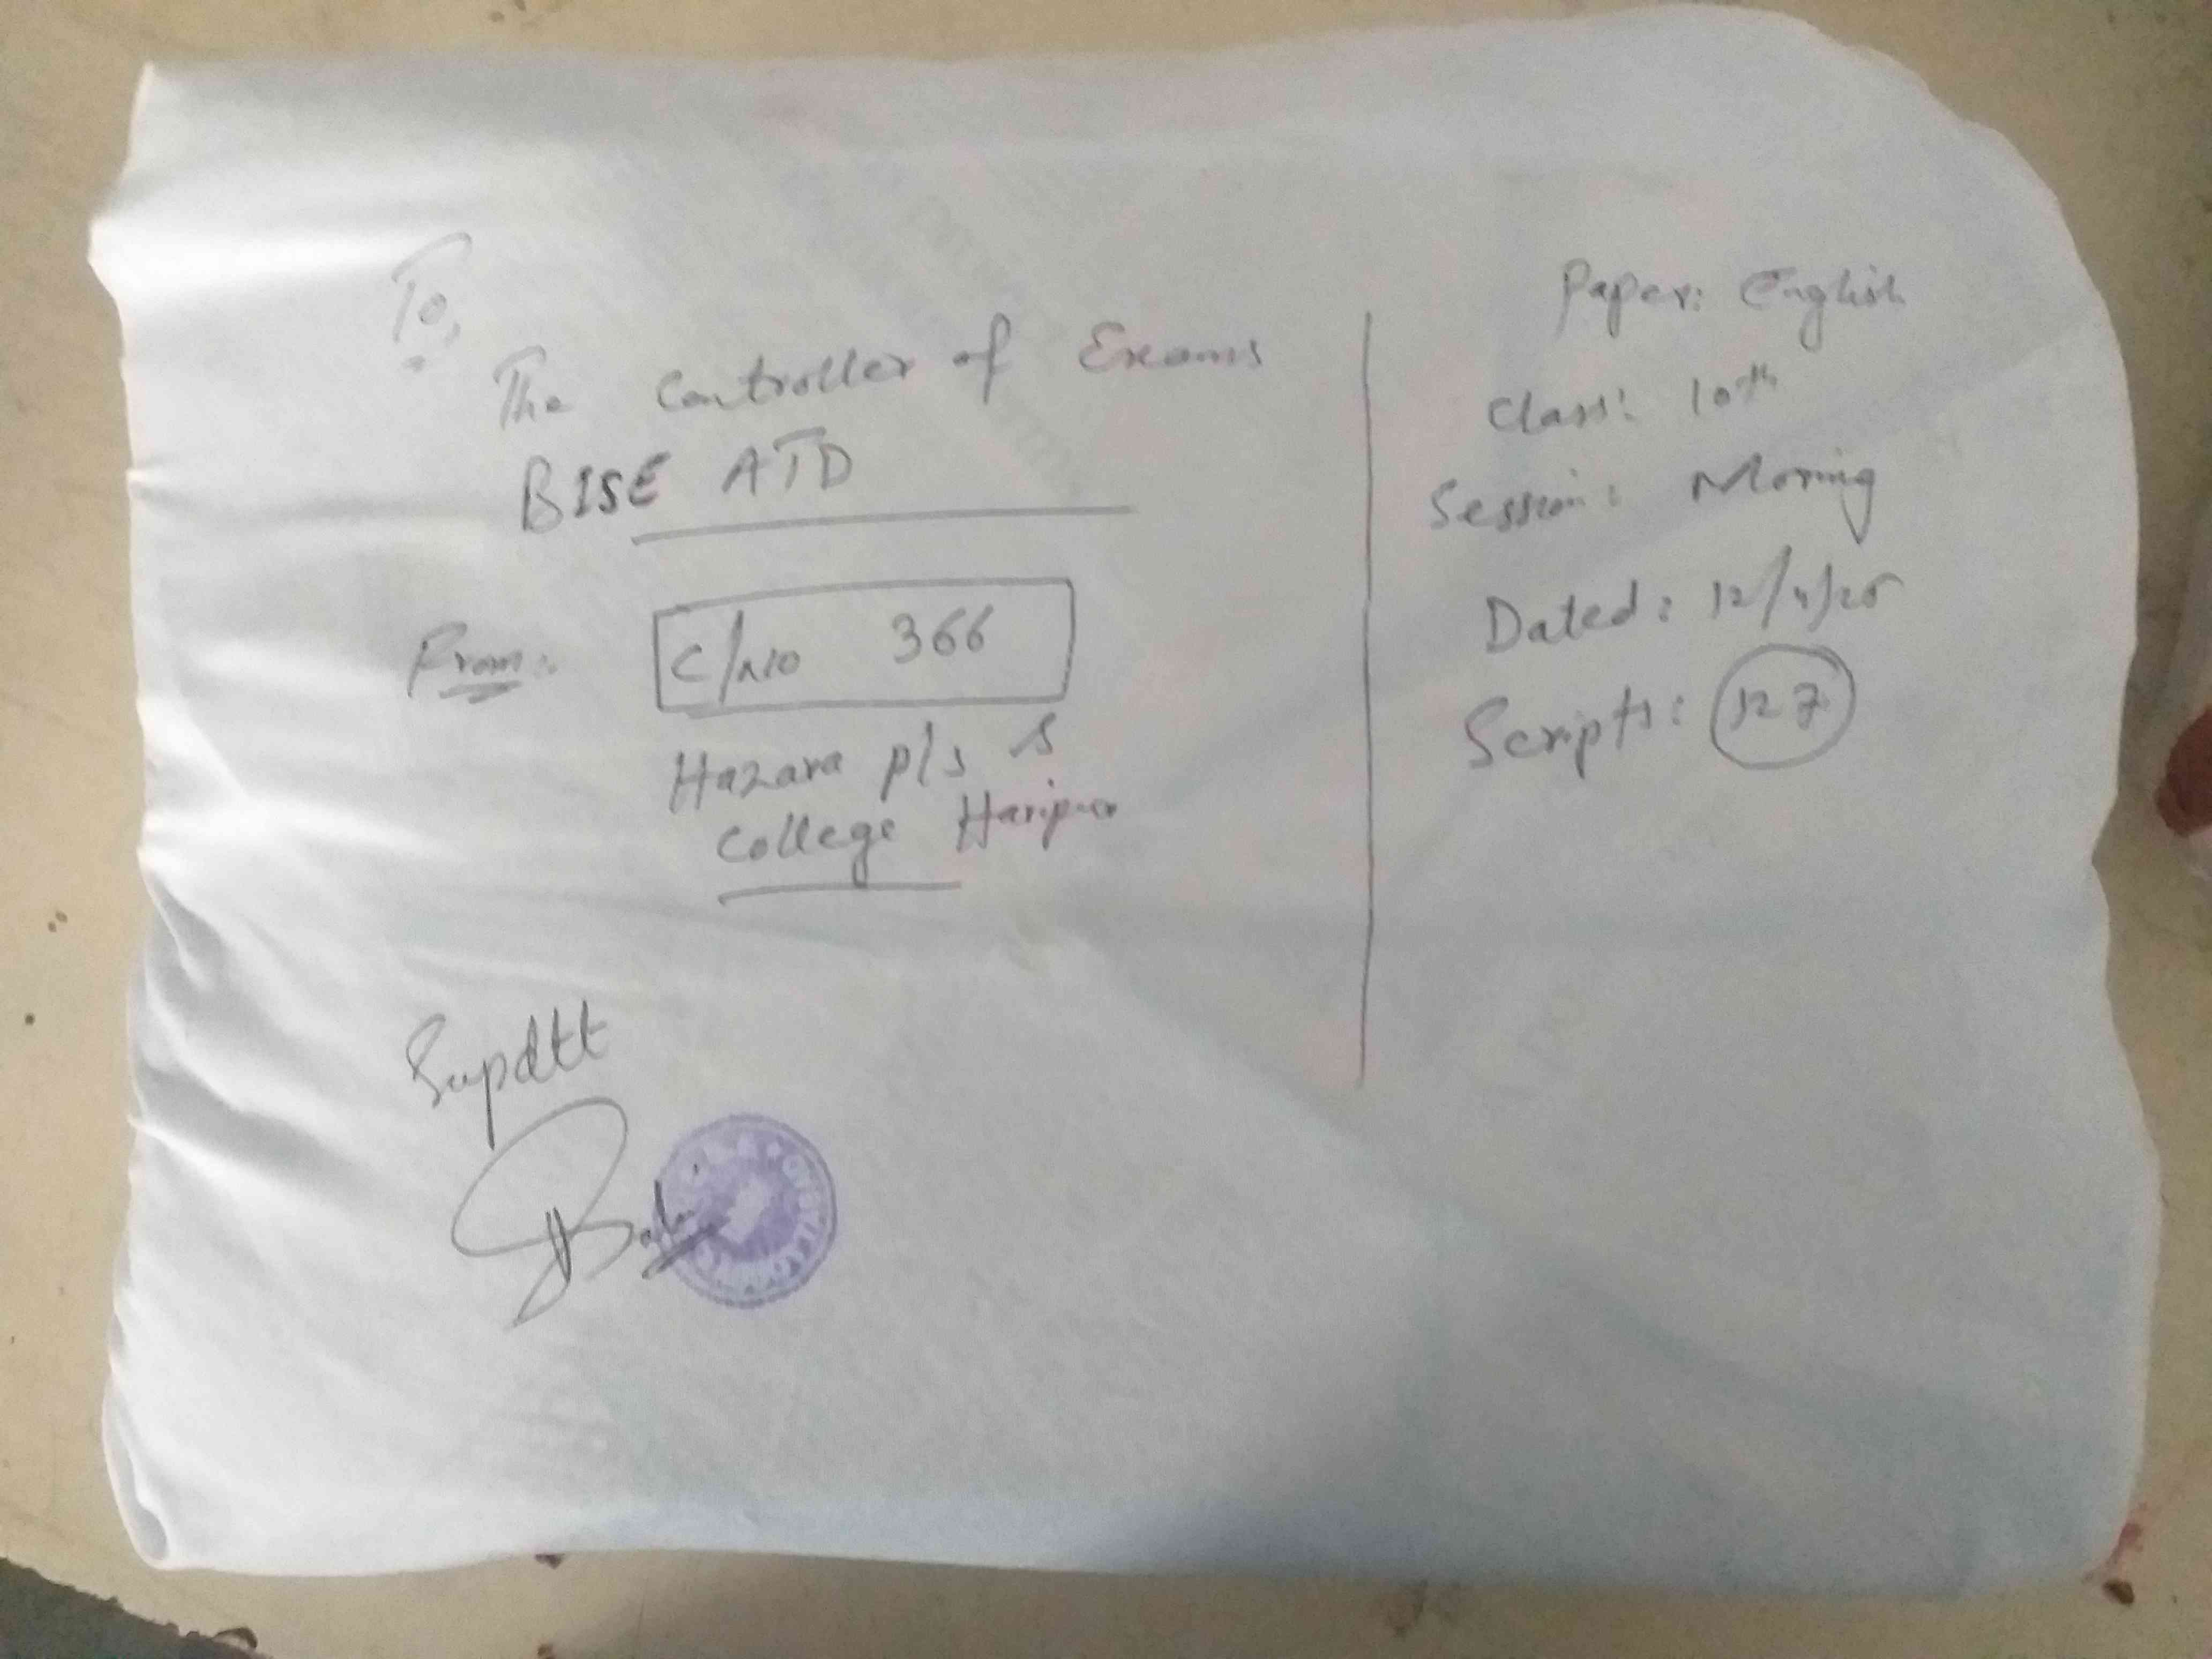 To,
The Controller of Exams
BISE ATD
From:
C/No 366
Hazara p/s &
College Haripur
Supdtt
Paper: English
Class: 10th
Session: Morning
Dated: 12/4/25
Scripts: 127